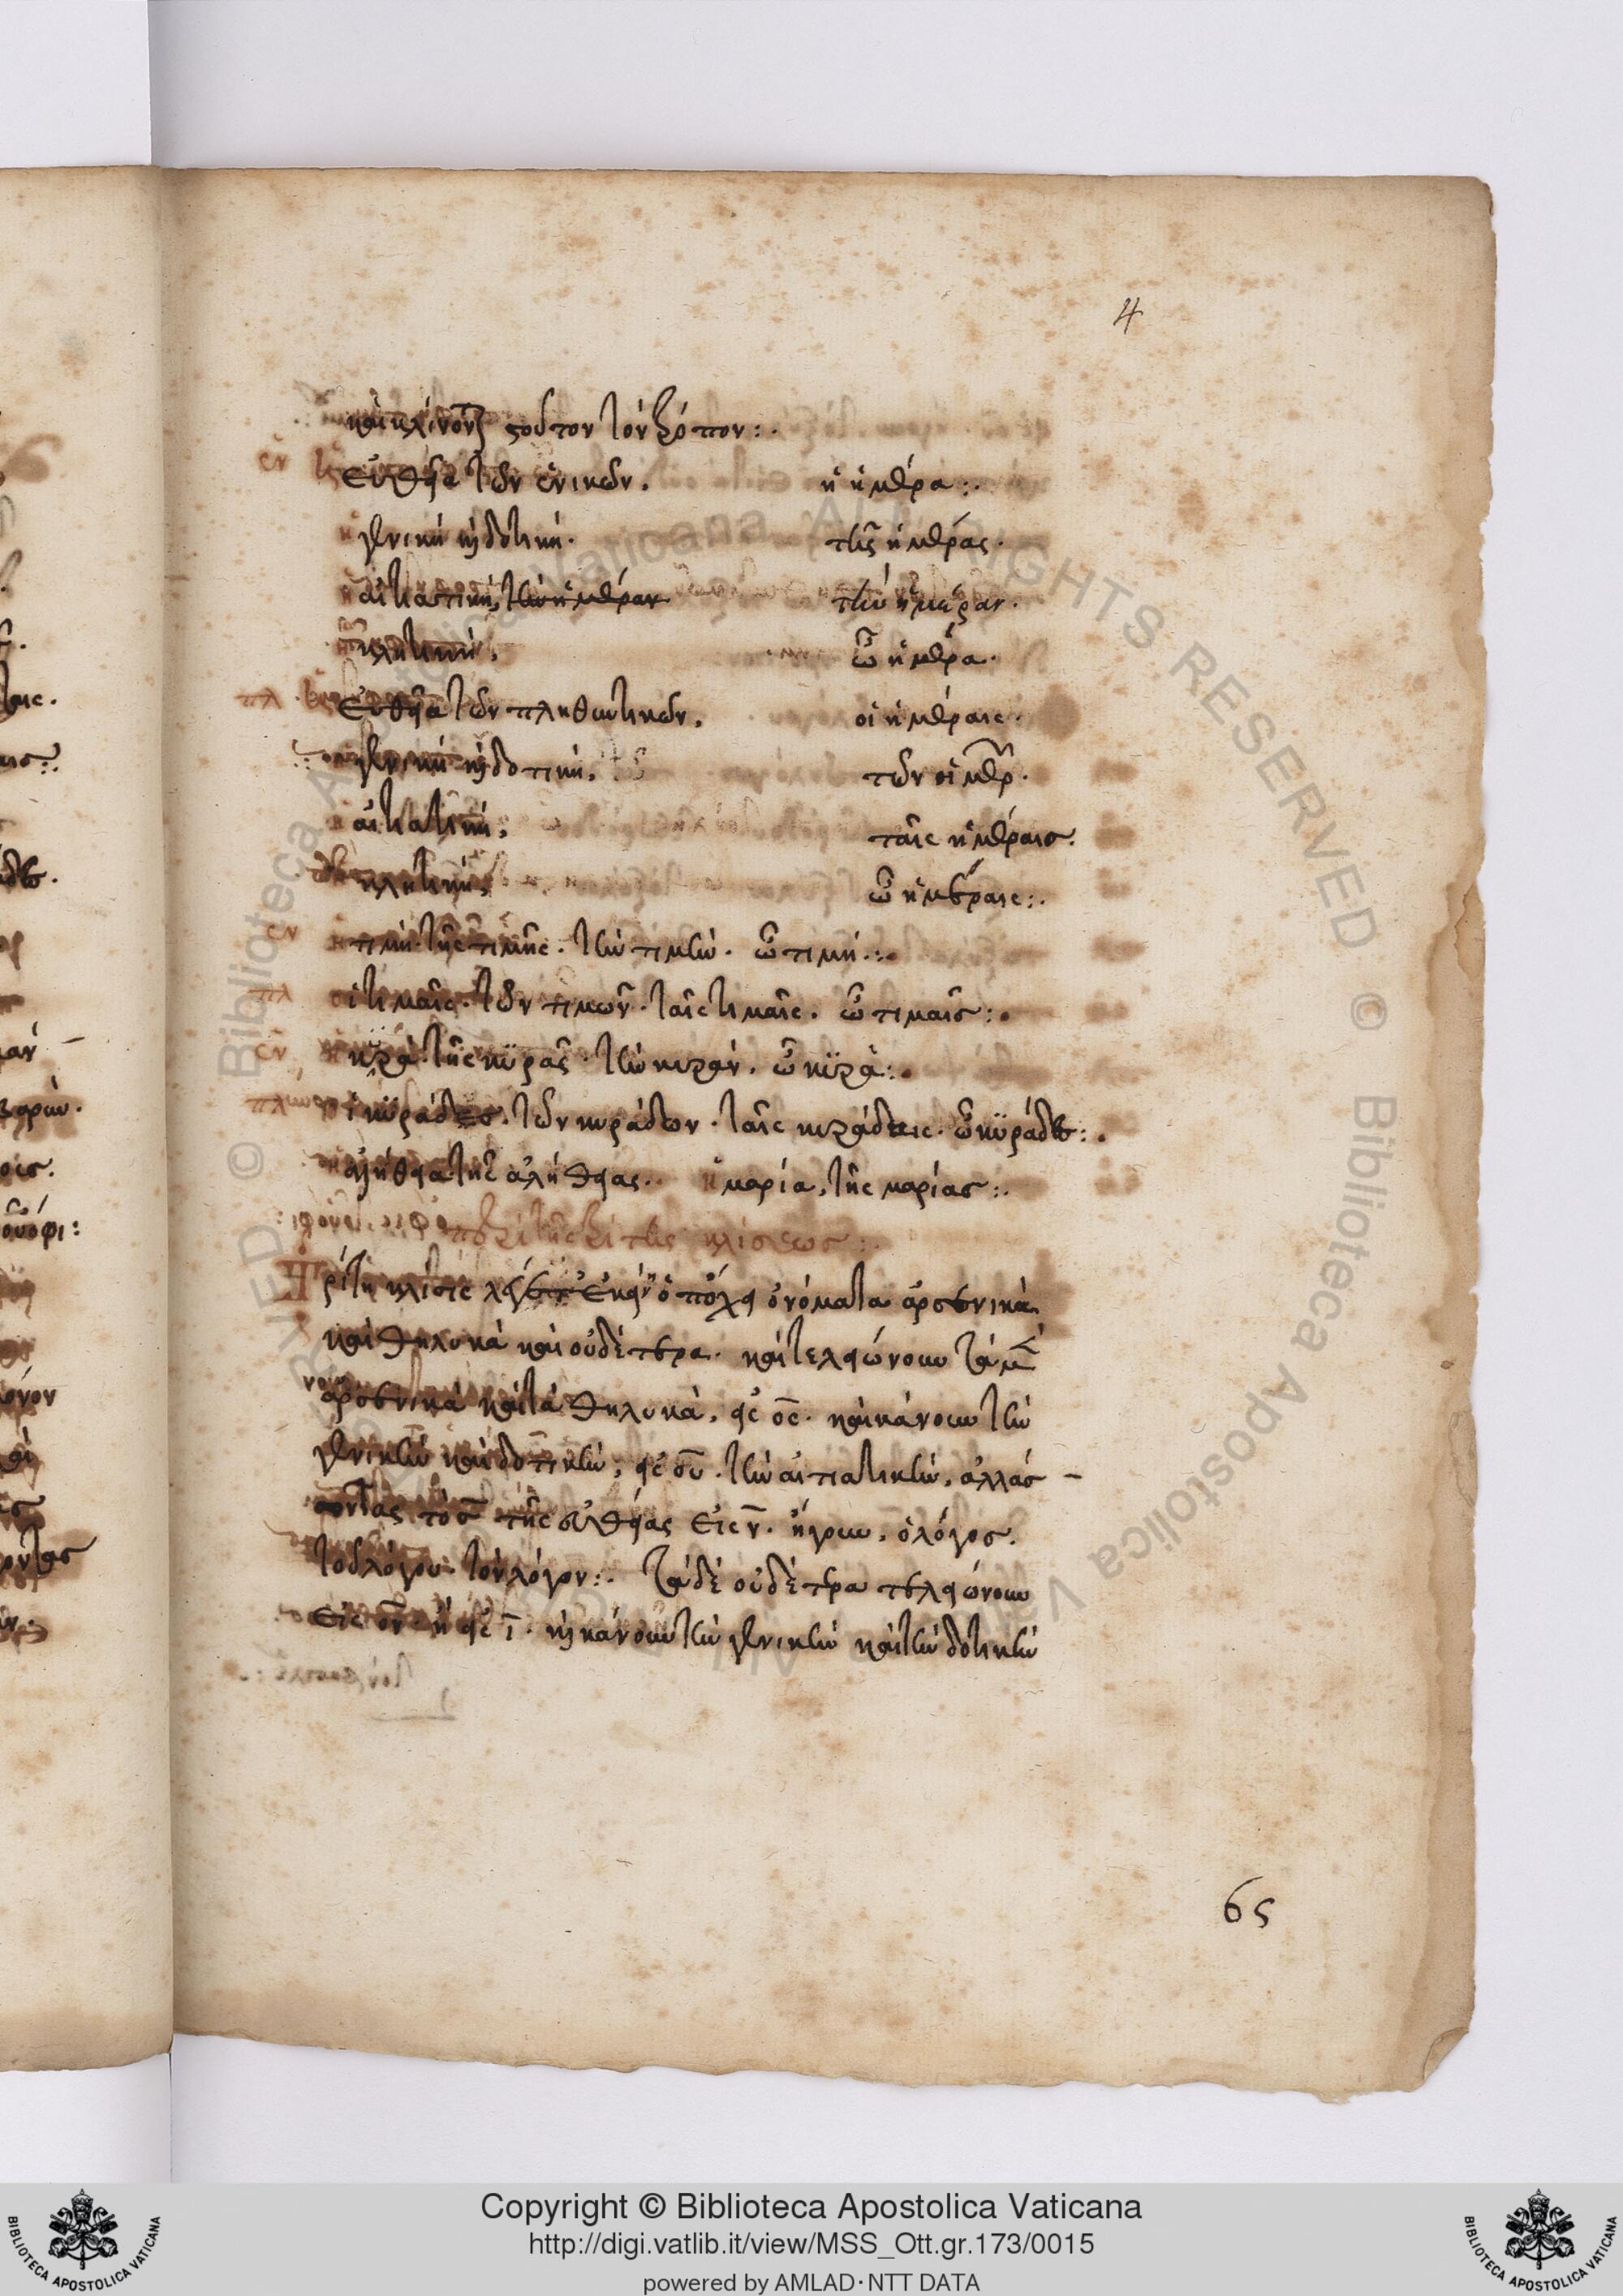 4
καὶ κλίνονται τοῦτον τὸν τρόπον:·
ἑν εὐθεῖα τῶν ἑνικῶν. ἡ ἡμέρα:·
γενικὴ καὶ δοτική. τῆς ἡμέρας.
αἰτιατική, τὴν ἡμέραν τὴν ἡμέραν.
κλητική. ὦ ἡμέρα.
πλ εὐθεῖα τῶν πληθυντικῶν. οἱ ἡμέραις.
γενικὴ καὶ δοτική. τῶν οἱμερ.
αἰτιατική. ταῖς ἡμέραις.
κλητική. ὦ ἡμέραις:·
ἑν τιμή. τῆς τιμῆς. τὴν τιμήν. ὦ τιμή:·
πλ ἱ τιμαῖς. τῶν τιμῶν. ταῖς τιμαῖς. ὦ τιμαῖς:·
ἑν κυρά. τῆς κυρᾶς. τὴν κυράν. ὦ κυρά:·
πλ ἱ κυράδες. τῶν κυράδων. ταῖς κυράδαις. ὦ κυράδες:·
ἀλήθεια τῆς ἀλήθειας. μαρία, τῆς μαρίας:·
περὶ τῆς τρίτης κλίσεως:·
Ἡ τρίτη κλίσις λέγεται ἐκείνη ὁποῦ ἔχει ὀνόματα ἀρσενικὰ
καὶ θηλυκὰ καὶ οὐδέτερα. καὶ τελειώνουν τὰ μὲν
ἀρσενικὰ καὶ τὰ θηλυκὰ, εἰς ος. καὶ κάνουν τὴν
γενικὴν καὶ δοτικὴν, εἰς ου. τὴν αἰτιατικὴν, ἀλλάσ-
σοντας τὸ σ τῆς εὐθείας εἰς ν. ἤγουν, ὁ λόγος.
τοῦ λόγου. τὸν λόγον:· τὰ δὲ οὐδέτερα τελειώνουν
εἰς ον ἢ εἰς ι. καὶ κάνουν τὴν γενικὴν καὶ τὴν δοτικὴν
65
Copyright © Biblioteca Apostolica Vaticana
http://digi.vatlib.it/view/MSS_Ott.gr.173/0015
powered by AMLAD·NTT DATA